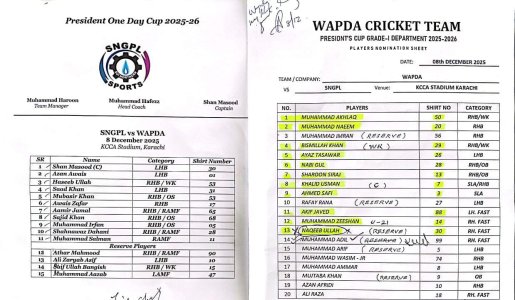 President One Day Cup 2025-26
SNGPL
SPORTS
Muhammad Haroon
Team Manager
Muhammad Hafeez
Head Coach
Shan Masood
Captain
SNGPL vs WAPDA
8 December 2025
KCCA Stadium, Karachi
SR Name Category Shirt Number
1 Shan Masood (C) LHB 30
2 Azan Awais LHB 01
3 Haseeb Ullah RHB / WK 53
4 Saad Khan LHB 31
5 Mubasir Khan RHB / OS 53
6 Awais Zafar RHB 17
7 Aamir Jamal RHB / RAMF 65
8 Sajid Khan RHB / OS 68
9 Muhammad Irfan RHB / OS 95
10 Shahnawaz Dahani RHB / RAMF 28
11 Muhammad Salman RAMF 11
Reserve Players
12 Athar Mahmood RHB / RAMF 90
13 Ali Zaryab Asif LHB 10
14 Saif Ullah Bangish RHB / WK 15
15 Muhammad Azaab LAMF 47
WAPDA CRICKET TEAM
PRESIDNT'S CUP GRADE-I DEPARTMENT 2025-2026
PLAYERS NOMINATION SHEET
DATE: 08th DECEMBER 2025
TEAM / COMPANY: WAPDA
VS SNGPL Venue: KCCA STADIUM KARACHI
NO. PLAYERS SHIRT NO CATEGORY
1 MUHAMMAD AKHLAQ 50 RHB/WK
2 MUHAMMAD NAEEM 20 RHB
3 MUHAMMAD IMRAN (RESERVE) 56 RHB
4 BISMILLAH KHAN (WK) 29 RHB/WK
5 AYAZ TASAWAR 26 LHB
6 NABI GUL 28 RHB/OB
7 SHAROON SIRAJ 13 RHB/OB
8 KHALID USMAN (C) 7 SLA/RHB
9 AHMED SAFI 3 SLA
10 RAFAY RANA (RESERVE) 27 LHB
11 AKIF JAVED 88 LH. FAST
12 MUHAMMAD ZEESHAN U-21 14 RH. FAST
13 NAQEEB ULLAH (RESERVE) 30 RH. FAST
14 MUHAMMAD ADIL (RESERVE) 99 RH. FAST
15 MUHAMMAD ARIF 5 LHB
16 MUHAMMAD WASIM - JR 74 RHB
17 MUHAMMAD AMMAR 8 LHB
18 MUJTABA KHAN (RESERVE) 9 OB
19 AZAN AFRIDI 10 RHB
20 ALI RAZA 18 RH. FAST